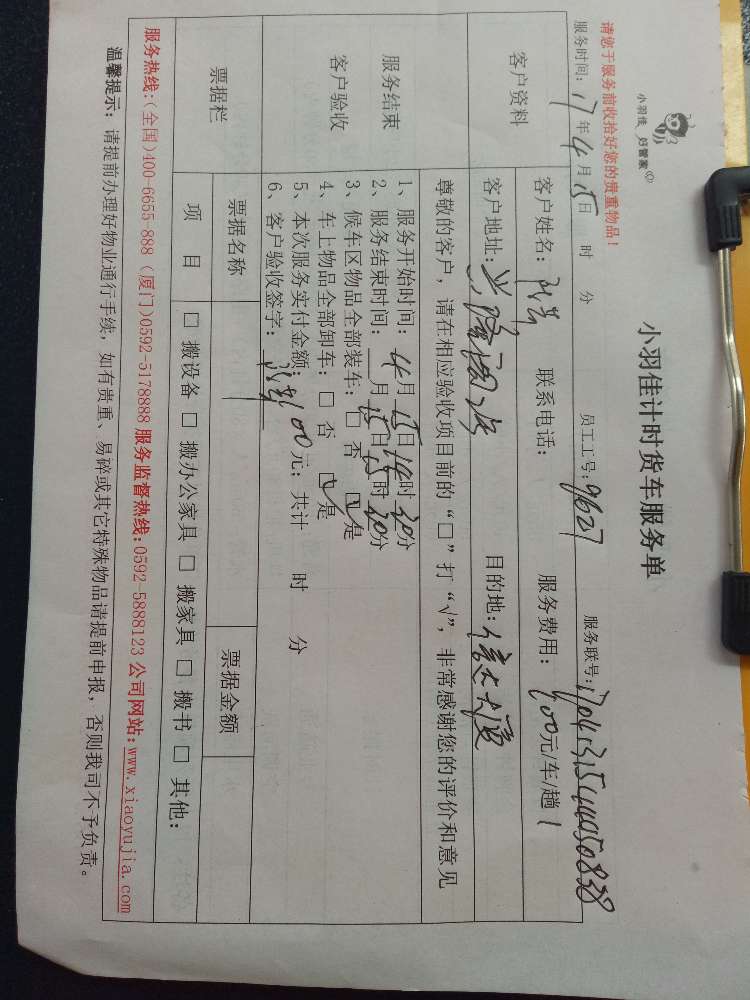 小羽佳 好管家
小羽佳计时货车服务单
请您于服务前收拾好您的贵重物品！
服务时间：17年4月15日 时 分 员工工号：9627 服务联号：
客户资料
客户姓名： 联系电话： 服务费用：100元/车/趟 1
客户地址： 目的地：信息大厦
尊敬的客户，请在相应验收项目前的“□”打“√”，非常感谢您的评价和意见
服务结束
客户验收
1、服务开始时间：4月15日14时30分
2、服务结束时间： 月15日15时30分
3、候车区物品全部装车：□ 否 ☑是
4、车上物品全部卸车：□ 否 ☑是
5、本次服务实付金额：100元；共计 时 分
6、客户验收签字：
票据栏
票据名称 票据金额
项 目 □ 搬设备 □ 搬办公家具 □ 搬家具 □ 搬书 □ 其他：
服务热线：(全国)400-6655-888 (厦门)0592-5178888 服务监督热线：0592-5888123 公司网站：www.xiaoyujia.com
温馨提示：请提前办理好物业通行手续，如有贵重、易碎或其它特殊物品请提前申报，否则我司不予负责。